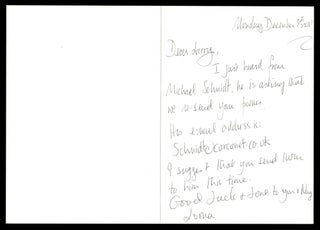 Monday December 3rd
Dear Larry,
I just heard from
Michael Schmidt, he is asking that
we re-send your poems.
His email address is:
Schmidt@carcanet.co.uk
I suggest that you send them
to him this time.
Good luck & love to you &
Lorna